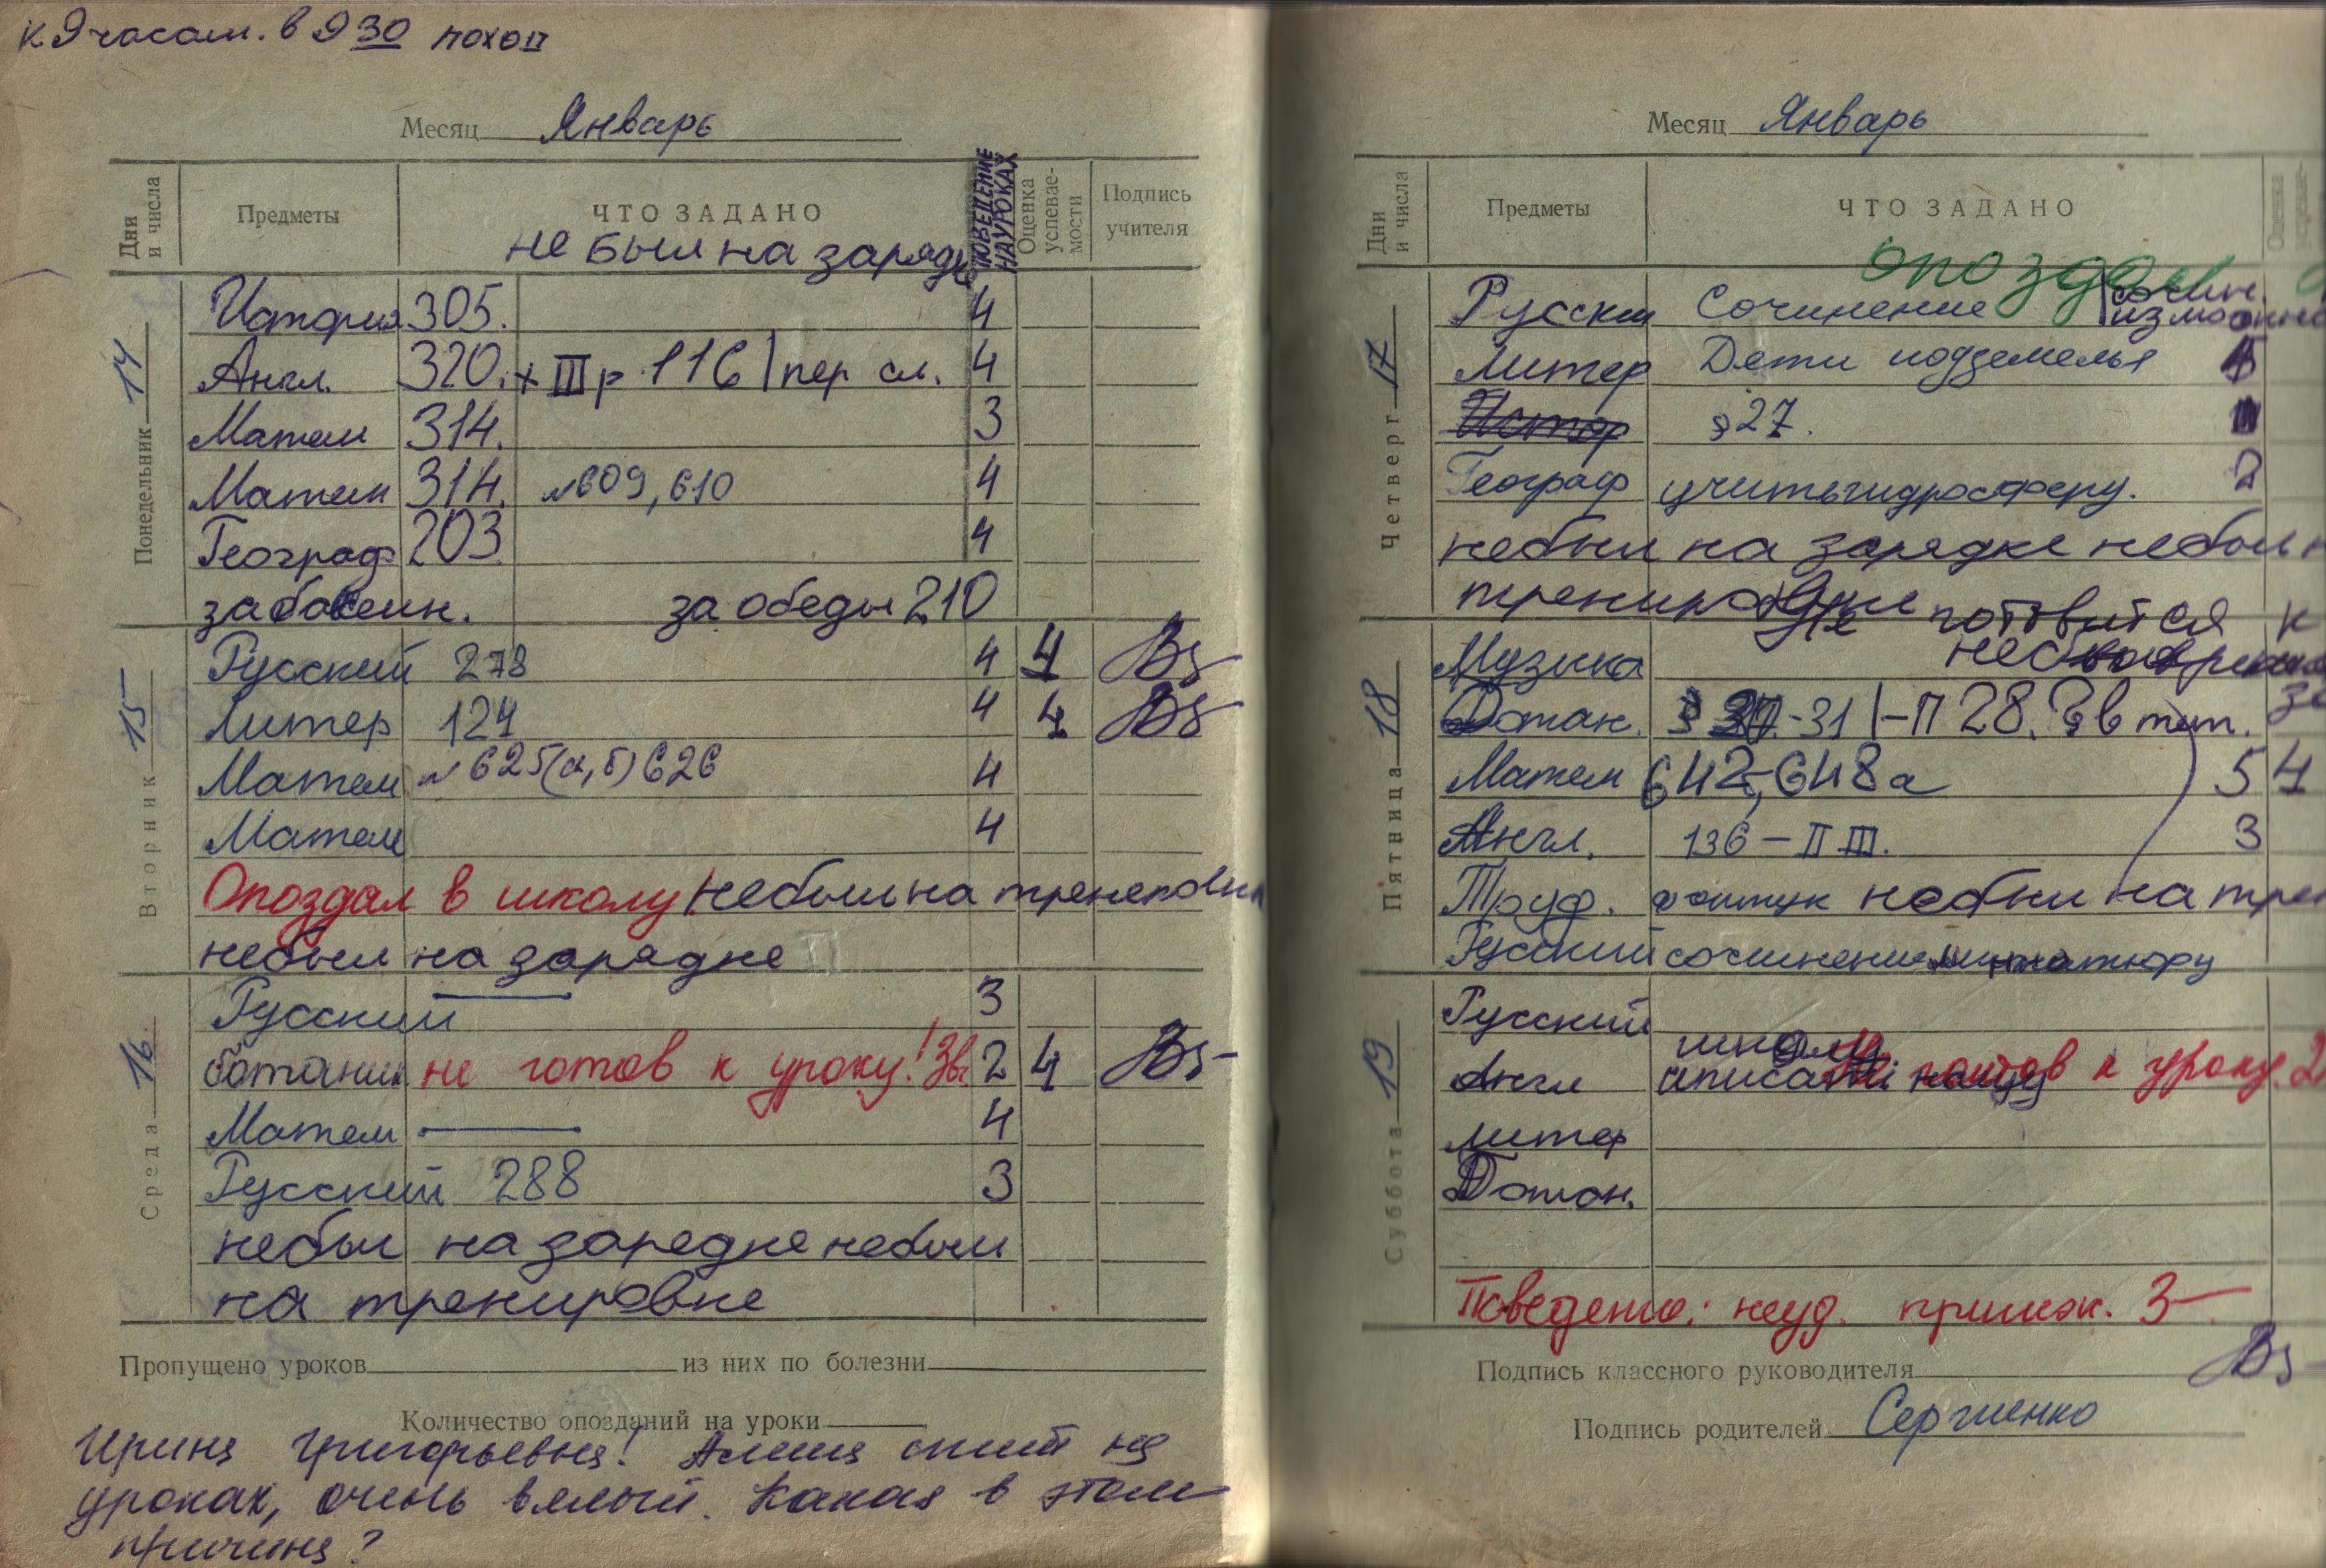 к 9 часам. в 9 30 поход
Месяц Январь
Дни и числа
Предметы
ЧТО ЗАДАНО
ПОВЕДЕНИЕ НА УРОКАХ
Оценка успевае-мости
Подпись учителя
не был на зарядке
Понедельник 14
История 305. 4
Англ. 320. + III р 116 | пер сл. 4
Матем 314. 3
Матем 314. №609, 610 4
Географ 203 4
за басеин. за обеды 210
Вторник 15
Русский 278 4 4
Литер 124 4 4
Матем №625(а,б) 626 4
Матем 4
Опоздал в школу! небыл на
небыл на зарядке
Среда 16.
Русский — 3
ботаник не готов к уроку! 2 4
Матем — 4
Русский 288 3
небыл на заредке небыл
на тренировке
Пропущено уроков из них по болезни
Количество опозданий на уроки
Ирина Григорьевна! Алеша спит на
уроках, очень вялый. Какая в этом
причина?
Месяц Январь
Дни и числа
Предметы
ЧТО ЗАДАНО
опоздал
Четверг 17
Русски Сочинение
Литер Дети подземелья
Истор §27.
Географ учить гидросферу. 2
небыл на зарядке небыл н
тренировке готовится к
Пятница 18
Музыка
Ботан. -31 |-П 28.
Матем 642, 648а 5 4
Англ. 136 – II III. 3
Труд. фартук небыл на трен
Русский сочинение миниатюру
Суббота 19
Русский
школу
Англ описать нашу готов к уроку. 2
Литер
Ботан.
Поведение: неуд. прилеж. 3-
Подпись классного руководителя
Подпись родителей Сергиенко